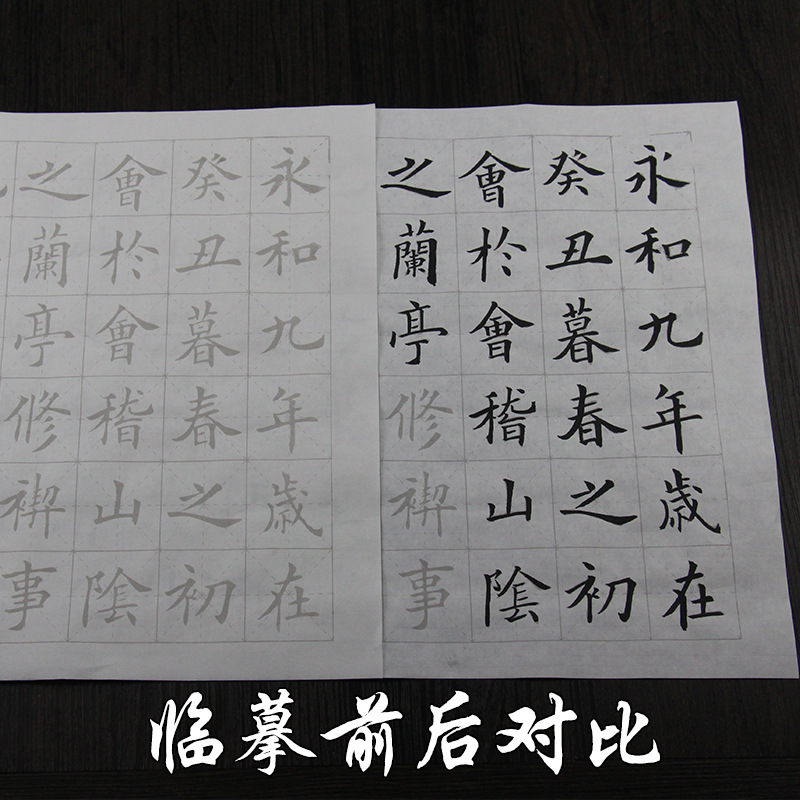 永和九年歳在
癸丑暮春之初
會於會稽山陰
之蘭亭修禊事
永和九年歳在
癸丑暮春之初
會於會稽山陰
之蘭亭修禊事
临摹前后对比